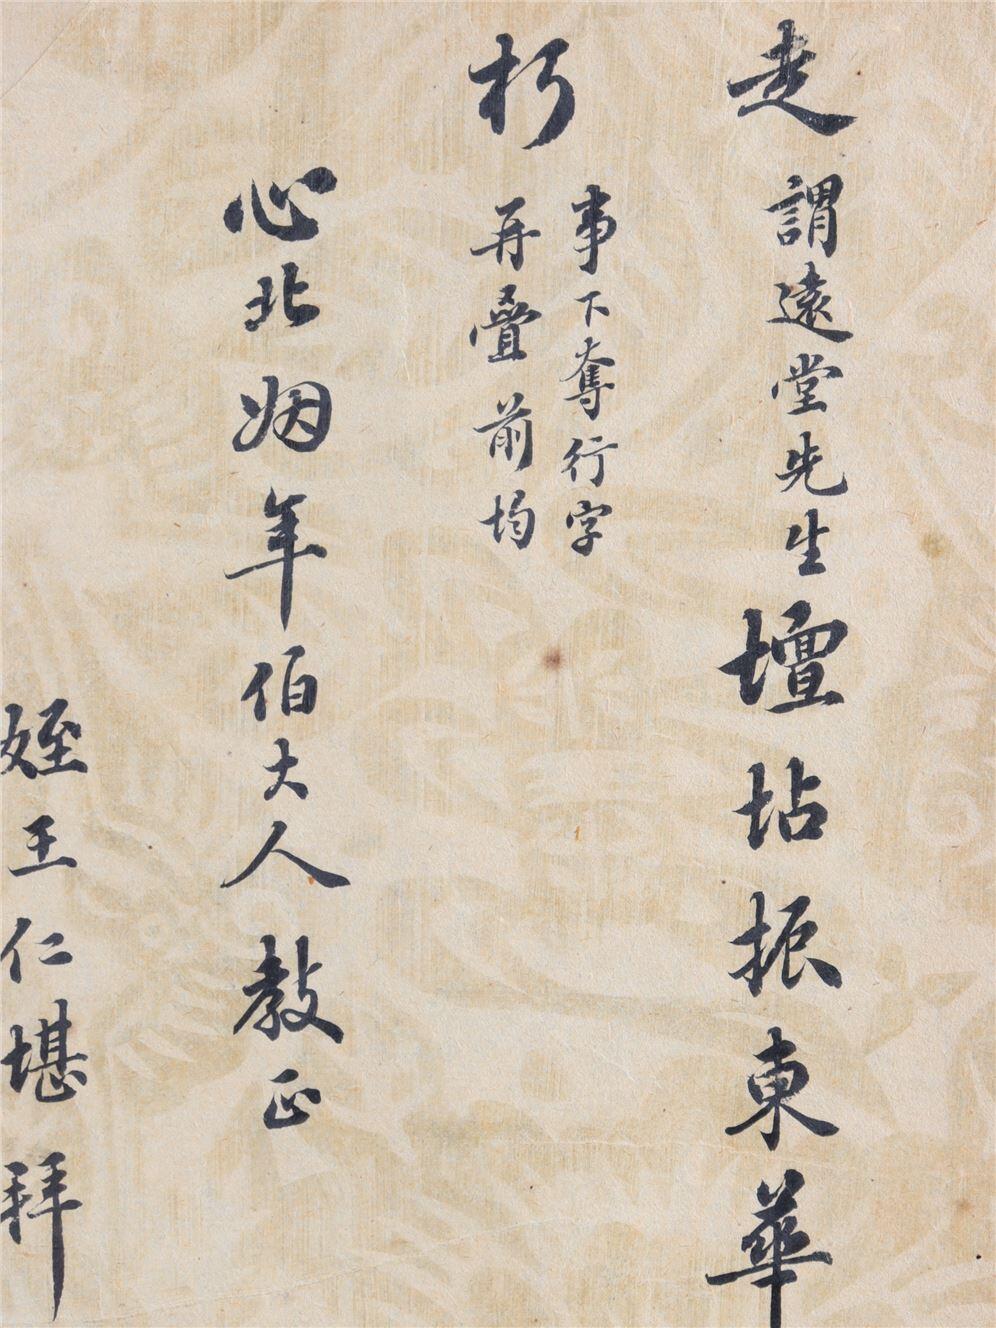 走謂遠堂先生壇坫振東華
朽
事下奪行字
再疊前均
心北姻年伯大人教正
姪王仁堪拜